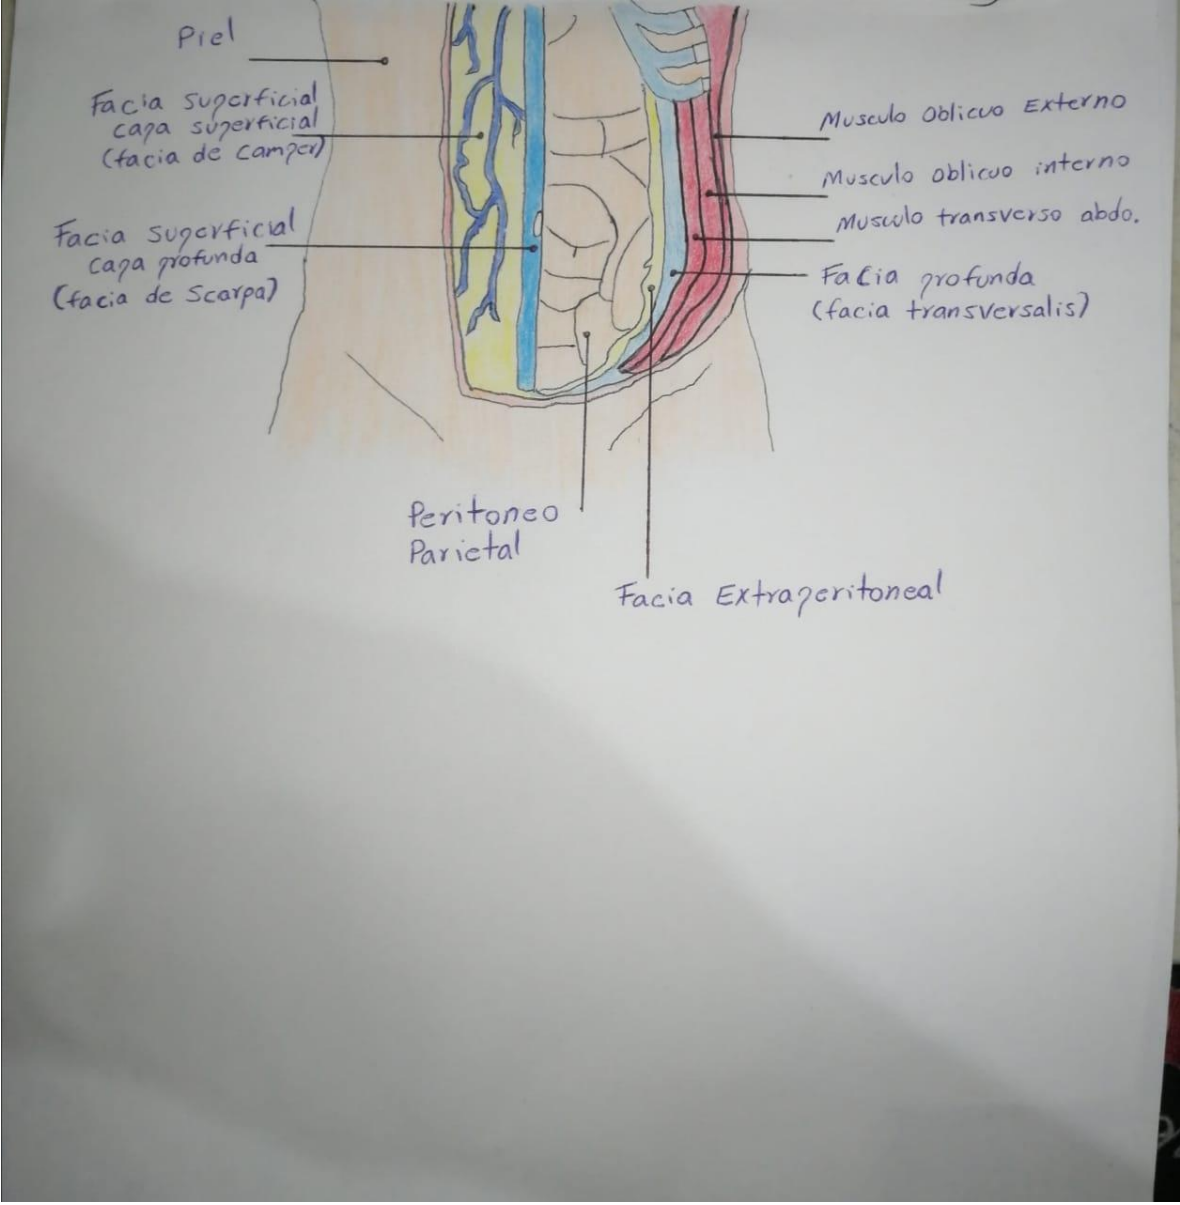 Piel
Facia superficial
capa superficial
(facia de camper)
Facia superficial
capa profunda
(facia de Scarpa)
Musculo Oblicuo Externo
Musculo oblicuo interno
Musculo transverso abdo.
Facia profunda
(facia transversalis)
Peritoneo
Parietal
Facia Extraperitoneal